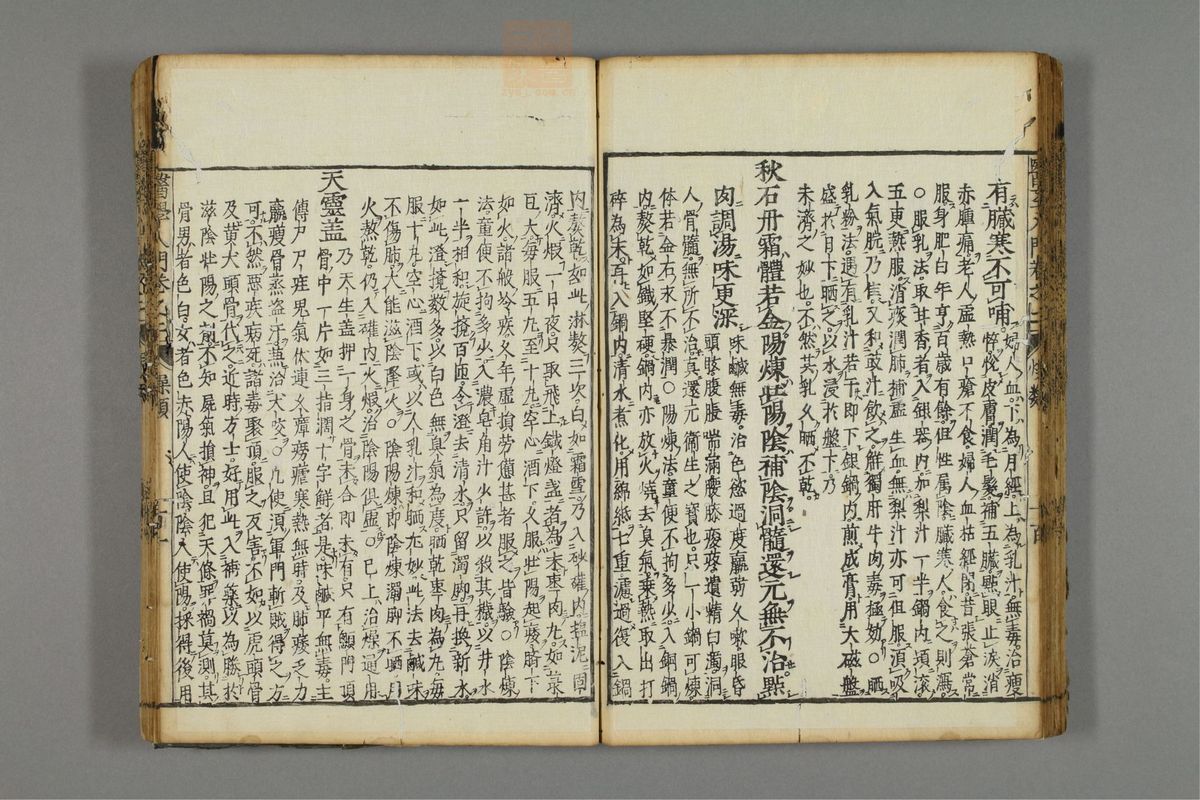 有臟寒不可哺。婦人血。下為月經。上為乳汁。無毒。治瘦
悴。悅皮膚。潤毛髮。補五臟。點眼止淚。消
赤腫痛。老人虛熱口瘡不食。婦人血枯經閉。昔張蒼常
服。身肥白。年享百歲有餘。但性屬陰。臟寒人食之則瀉。
○服乳法。取甘香者。入銀器內。加梨汁一半。鍋內頃滾。
五更熱服。消痰潤肺補虛生血。無梨汁亦可。但服須吸
入氣脘乃佳。又利豉汁飲之。解獨肝牛肉毒極効。○晒
乳粉法。遇有乳汁若干。即下銀鍋內。煎成膏。用大磁盤
盛於日下晒之。以水浸於盤下。乃
未濟之妙也。不然其乳久晒不乾。
秋石丹霜體若金。陽煉壯陽陰補陰。洞髓還元無不治。點
肉調湯味更深
味鹹無毒。治色慾過度。羸弱久嗽。眼昏
頭眩。腹脹喘滿。腰膝痠疼。遺精白濁。洞
人骨髓。無所不治。真還元衛生之寶也。只一小鍋可煉。
体若金石。永不暴潤。○陽煉法。童便不拘多少。入銅鍋
內。熬乾如鐵堅硬。鍋內亦放火燒去臭氣。乘熱取出打
碎為末。再入鍋內。清水煮化。用綿紙七重濾過。復入鍋
內熬乾。如此淋熬三次。白如霜雪。乃入砂礶內。塩泥固
濟。火煅一日夜。只取飛上鐵燈盞者。為末。棗肉丸如菉
豆大。每服五丸至十丸。空心酒下。久服壯陽起痿。臍下
如火。諸般冷疾。久年虛損勞憊甚者。服之皆驗。○陰煉
法。童便不拘多少。入濃皂角汁少許。以殺其穢。以井水
一半相和。旋攪百匝。令澄去清水。只留濁脚。再換新水。
如此澄攪數多。以白色無臭氣為度。晒乾。棗肉為丸。每
服十丸。空心酒下。或以人乳汁和晒尤妙。此法去鹹味
不傷肺。大能滋陰降火。○陰陽煉。即陰煉濁脚不晒。用
火熬乾。仍入礶內火煅。治陰陽俱虛。○已上治燥通用。
天靈蓋
乃天生蓋押一身之骨。未合即未有。只有顖門。頂
骨中一片。如三指濶。十字鮮者是。味鹹平。無毒。主
傳尸尸疰。鬼氣依連。久瘴癆瘧。寒熱無時。及肺痿乏力。
羸瘦骨蒸盜汗。兼治犬咬。○凡使須軍門斬賊得之方
可。不然惡疾病死。諸毒聚頂。服之反害。不如以虎頭骨
及黃犬頭骨代之。近時方士好用此入補藥。以為勝於
滋陰壯陽之劑。不知屍氣損神。且犯天條。罪禍莫測。其
骨男者色白。女者色赤。陽人使陰。陰人使陽。採得後用